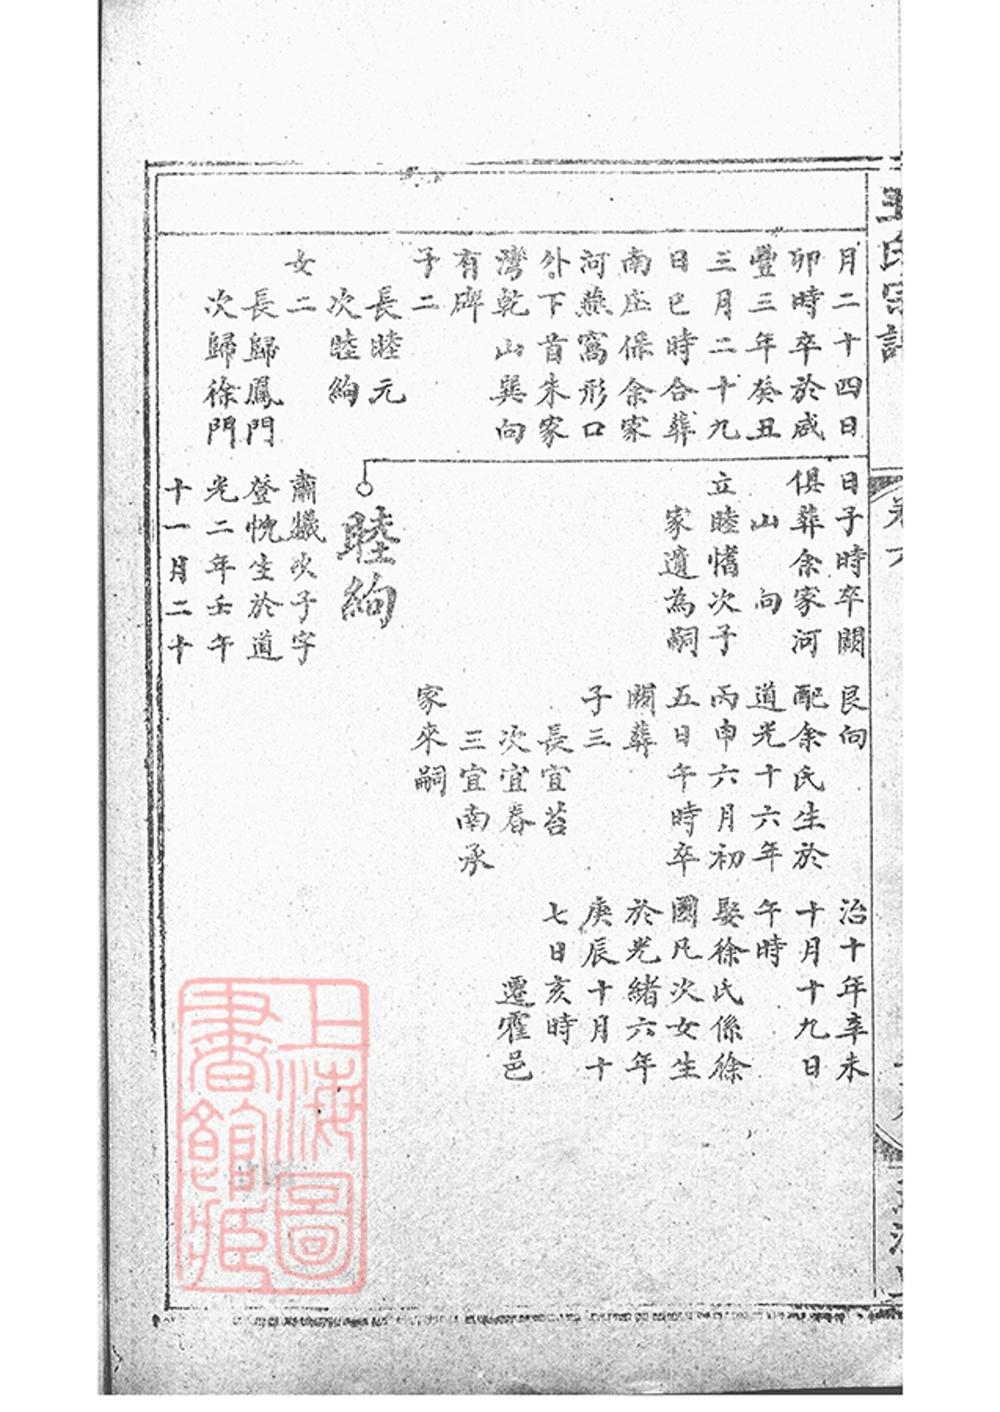 王氏宗譜
月二十四日
卯時卒於咸
豐三年癸丑
三月二十九
日巳時合葬
南庄保余家
河燕窩形口
外下首朱家
灣乾山巽向
有碑
子二
長睦元
次睦絢
女二
長歸鳳門
次歸徐門
日子時卒闕
俱葬余家河
山向
立睦慉次子
家遺為嗣
睦絢
肅孅次子字
登恱生於道
光二年壬午
十一月二十
艮向
配余氏生於
道光十六年
丙申六月初
五日午時卒
闕葬
子三
長宜苔
次宜春
三宜南承
家來嗣
治十年辛未
十月十九日
午時
娶徐氏係徐
國凡次女生
於光緒六年
庚辰十月十
七日亥時
遷霍邑
上海圖
書館藏